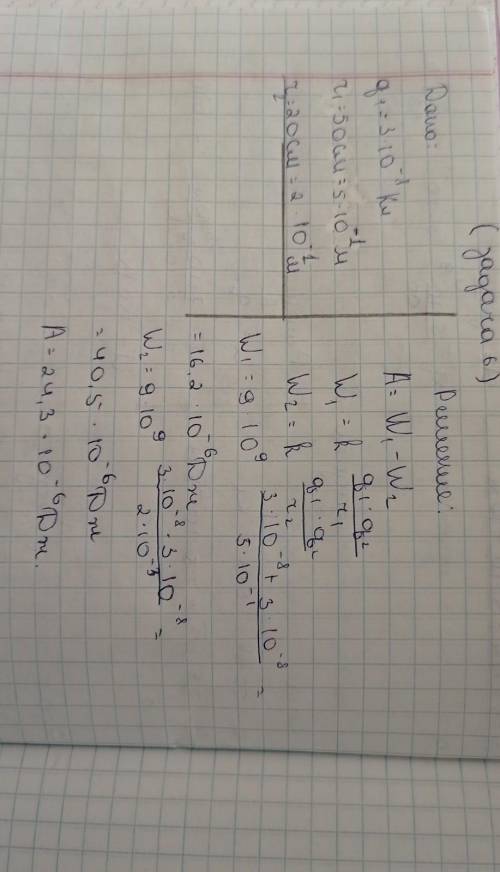 (задача 6)
Дано:
q₁ = 3·10⁻⁸ Кл
r₁ = 50см = 5·10⁻¹ м
r₂ = 20см = 2·10⁻¹ м
Решение:
A = W₁ - W₂
W₁ = k q₁·q₂ / r₁
W₂ = k q₁·q₂ / r₂
W₁ = 9·10⁹ 3·10⁻⁸ + 3·10⁻⁸ / 5·10⁻¹ =
= 16,2·10⁻⁶ Дж
W₂ = 9·10⁹ 3·10⁻⁸·3·10⁻⁸ / 2·10⁻¹ =
= 40,5·10⁻⁶ Дж
A = 24,3·10⁻⁶ Дж.